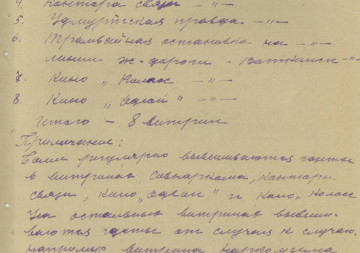 4. Контора связи — " —
5. Удмуртская правда — " —
6. Трамвайная остановка на — " —
линии ж-дороги - Воткинск — " —
7. Кино „Колос" — " —
8. Кино „Одеон" — " —
Итого — 8 витрин
Примечание:
Более регулярно вывешиваются газеты
в витринах Совнаркома, конторы
связи, кино „Одеон" и кино „Колосс"
На остальных витринах вывеши-
ваются газеты от случая к случаю,
например витрина